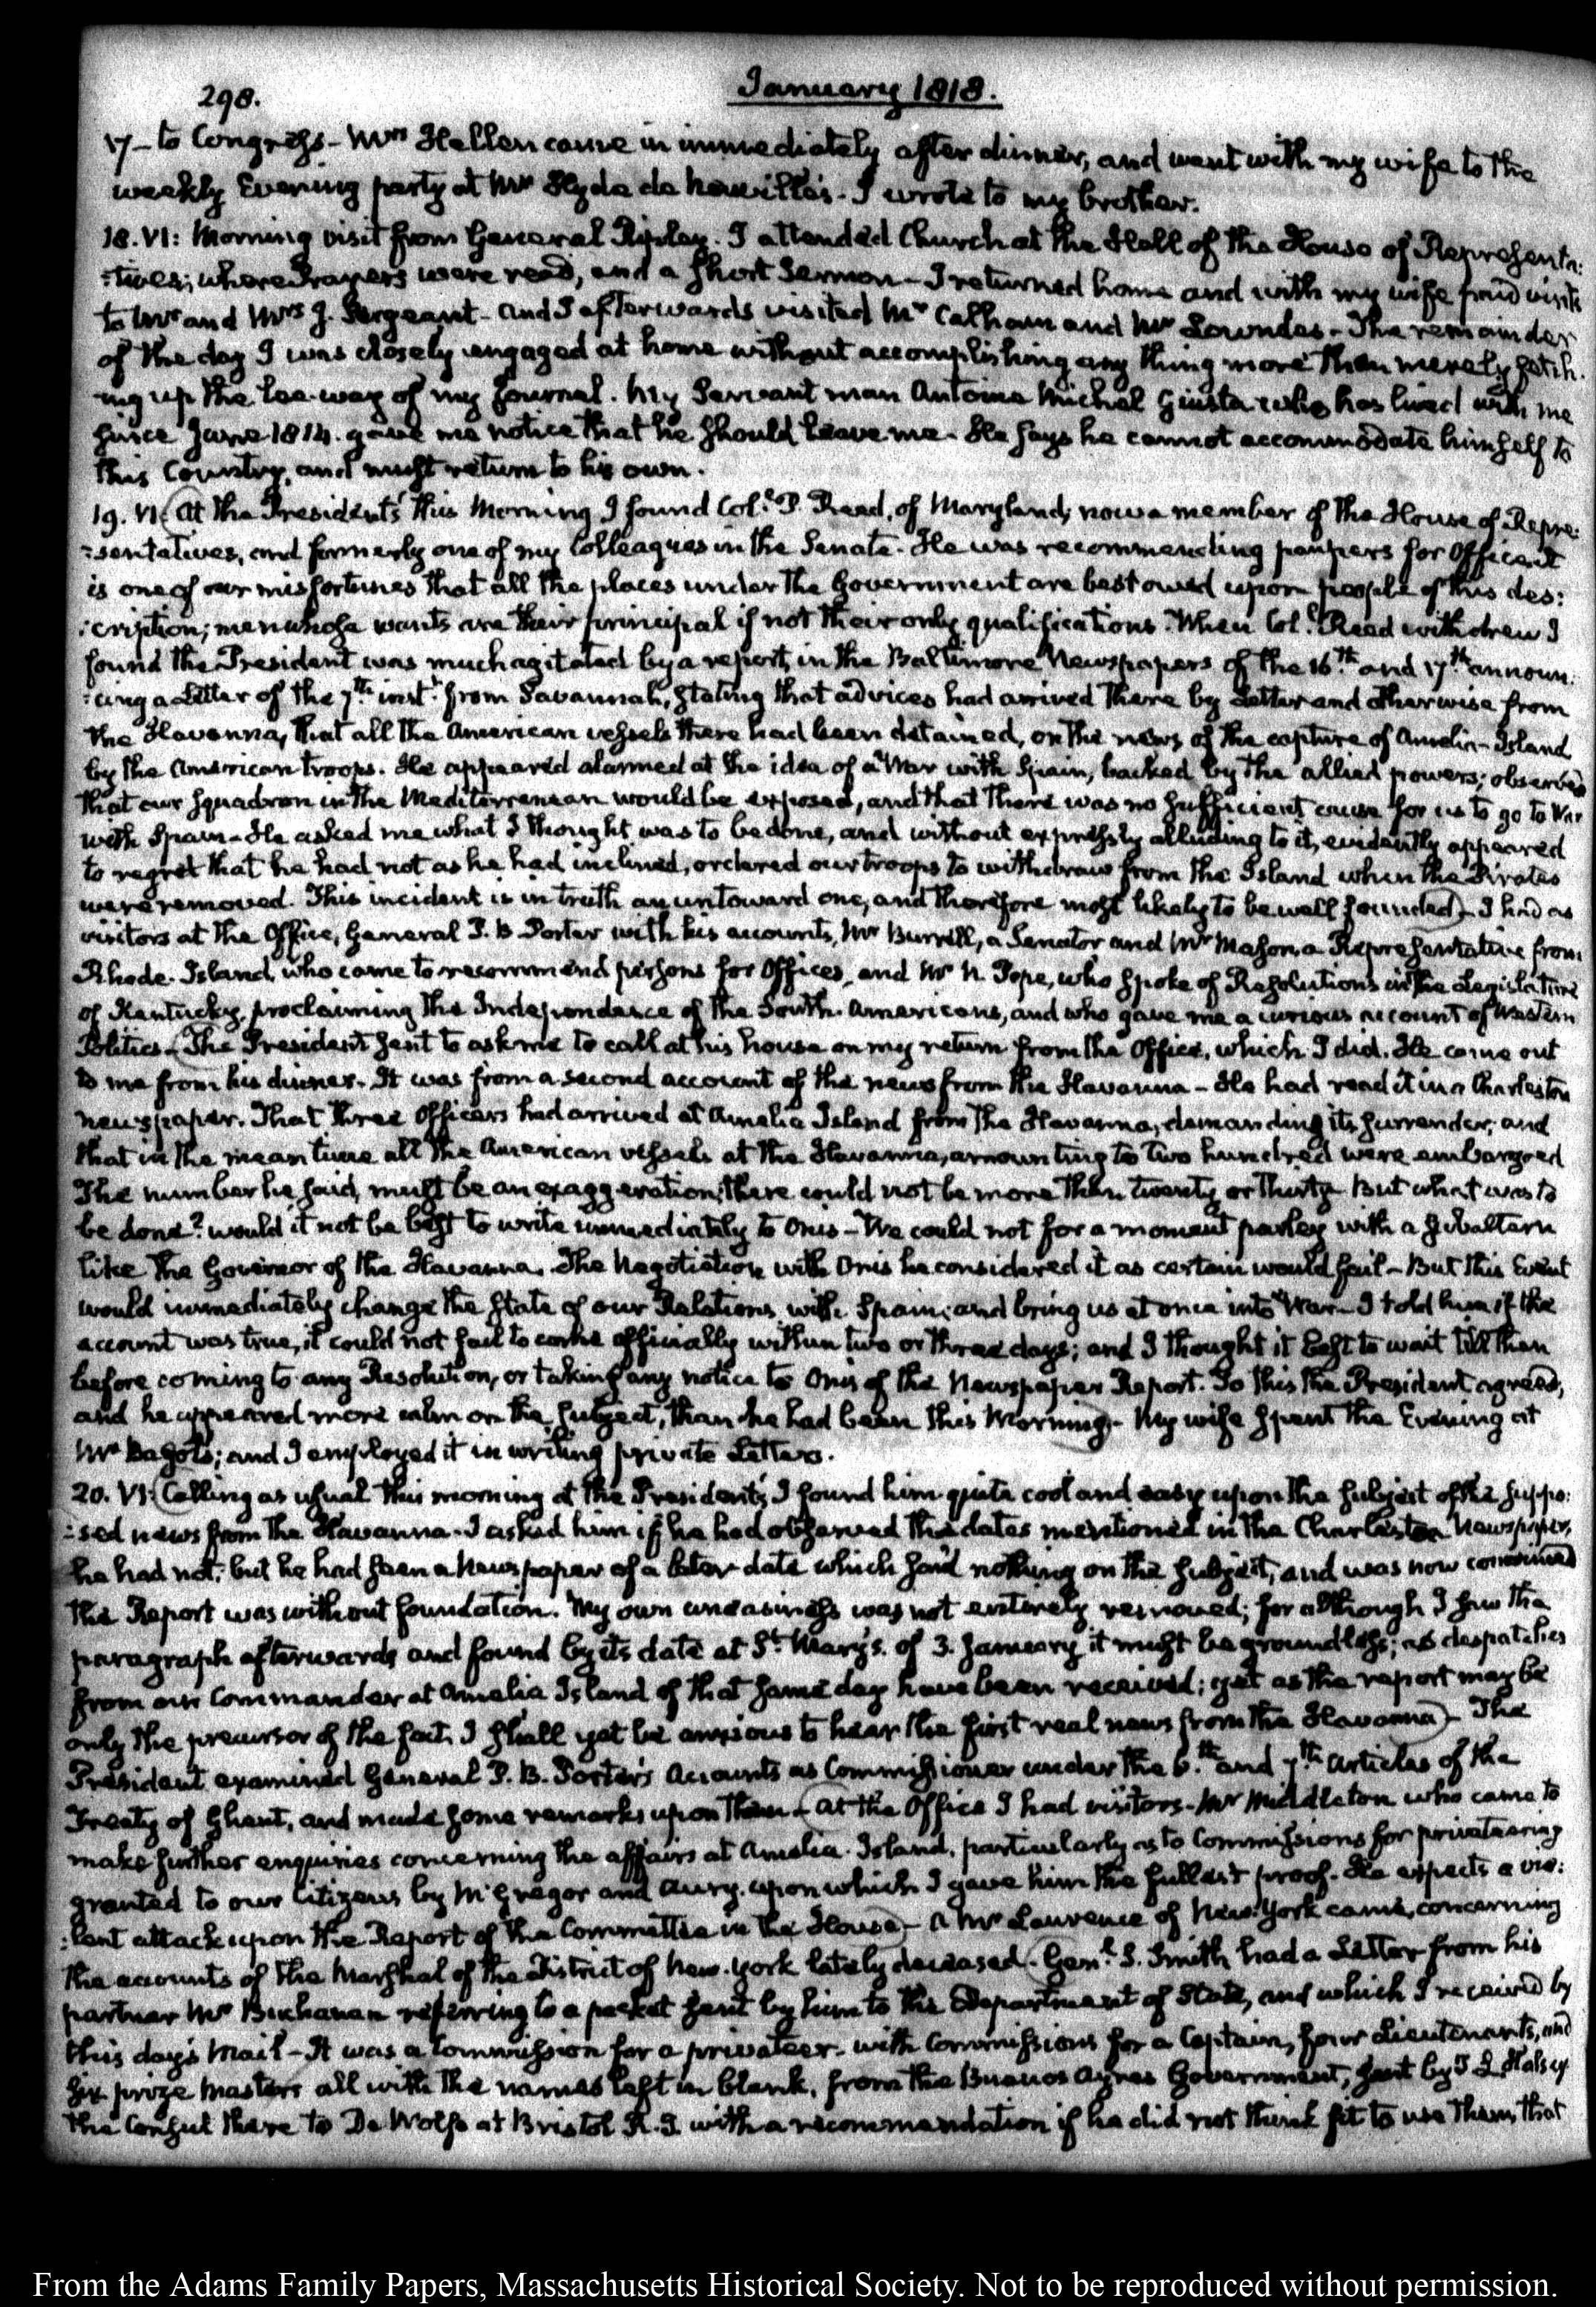 298.
January 1818.
17 - to Congress - Mrs Hellen came in immediately after dinner, and went with my wife to the
weekly Evening party at Mr Hyde de Neuville's - I wrote to my brother.
18. VI: Morning visit from General Ripley. I attended Church at the Hall of the House of Representa:
:tives; where Prayers were read, and a short Sermon - I returned home and with my wife paid visits
to Mr and Mrs J. Sergeant - And I afterwards visited Mr Calhoun and Mr Lowndes - The remainder
of the day I was closely engaged at home without accomplishing any thing more than merely fetch:
ing up the lee-way of my Journal. My Servant man Antoine Michel Giusta who has lived with me
since June 1814. gave me notice that he should leave me - He says he cannot accommodate himself to
this Country, and must return to his own.
19. VI. At the President's this Morning I found Col. P. Reed, of Maryland, now a member of the House of Repre:
:sentatives, and formerly one of my Colleagues in the Senate. He was recommending paupers for Office. it
is one of our misfortunes that all the places under the Government are bestowed upon people of this des:
:cription; men whose wants are their principal if not their only qualifications. When Col. Reed withdrew I
found the President was much agitated by a report, in the Baltimore Newspapers of the 16th and 17th announ:
:cing a Letter of the 7th inst. from Savannah, stating that advices had arrived there by Letter and otherwise from
the Havanna, that all the American vessels there had been detained, on the news of the capture of Amelia-Island
by the American troops. He appeared alarmed at the idea of a War with Spain, backed by the allied powers; observed
that our squadron in the Mediterranean would be exposed, and that there was no sufficient cause for us to go to War
with Spain - He asked me what I thought was to be done, and without expressly alluding to it, evidently appeared
to regret that he had not as he had inclined, ordered our troops to withdraw from the Island when the Pirates
were removed. This incident is in truth an untoward one, and therefore most likely to be well founded - I had as
visitors at the Office, General P. B Porter with his accounts, Mr Burrill, a Senator and Mr Mason, a Representative from
Rhode-Island, who came to recommend persons for Offices, and Mr N. Pope, who spoke of Resolutions in the Legislature
of Kentucky, proclaiming the Independence of the South-Americans, and who gave me a curious account of Western
Politics - The President sent to ask me to call at his house on my return from the Office, which I did. He came out
to me from his dinner - It was from a second account of the news from the Havanna - He had read it in a Charleston
newspaper. That three Officers had arrived at Amelia Island from the Havanna, demanding its surrender; and
that in the mean time all the American vessels at the Havanna, amounting to two hundred were embargoed
The number he said, must be an exaggeration; there could not be more than twenty or thirty - But what was to
be done? would it not be best to write immediately to Onis - We could not for a moment parley with a subaltern
like the Governor of the Havanna. The Negotiation with Onis he considered it as certain would fail - But this Event
would immediately change the state of our Relations with Spain; and bring us at once into War - I told him if the
account was true, it could not fail to come officially within two or three days; and I thought it best to wait till then
before coming to any Resolution, or taking any notice to Onis of the Newspaper Report. To this the President agreed,
and he appeared more calm on the subject, than he had been this Morning. - My wife spent the Evening at
Mrs Bagot's; and I employed it in writing private Letters.
20. VI: Calling as usual this morning at the President's, I found him quite cool and easy upon the subject of the suppo:
:sed news from the Havanna. I asked him if he had observed the dates mentioned in the Charleston Newspaper,
he had not; but he had seen a Newspaper of a later date which said nothing on the subject, and was now convinced
the Report was without foundation. My own uneasiness was not entirely removed; for although I saw the
paragraph afterwards and found by its date at St. Mary's. of 3. January it must be groundless; as despatches
from our Commander at Amelia Island of that same day have been received; yet as the report may be
only the precursor of the fact, I shall yet be anxious to hear the first real news from the Havanna - The
President examined General P. B. Porter's Accounts as Commissioner under the 6.th and 7.th Articles of the
Treaty of Ghent, and made some remarks upon them - At the Office I had visitors - Mr Middleton who came to
make further enquiries concerning the affairs at Amelia-Island, particularly as to Commissions for privateering
granted to our Citizens by McGregor and Aury. upon which I gave him the fullest proof. He expects a vio:
:lent attack upon the Report of the Committee in the House - A Mr Lawrence of New-York came, concerning
the accounts of the Marshal of the District of New-York lately deceased. Genl. S. Smith had a Letter from his
partner Mr Buchanan referring to a packet sent by him to the Department of State, and which I received by
this day's Mail - It was a Commission for a privateer - with Commissions for a Captain, four Lieutenants, and
six prize Masters all with the names left in blank, from the Buenos Ayres Government, sent by T L Halsey
the Consul there to De Wolfe at Bristol R. I. with a recommendation if he did not think fit to use them, that
From the Adams Family Papers, Massachusetts Historical Society. Not to be reproduced without permission.